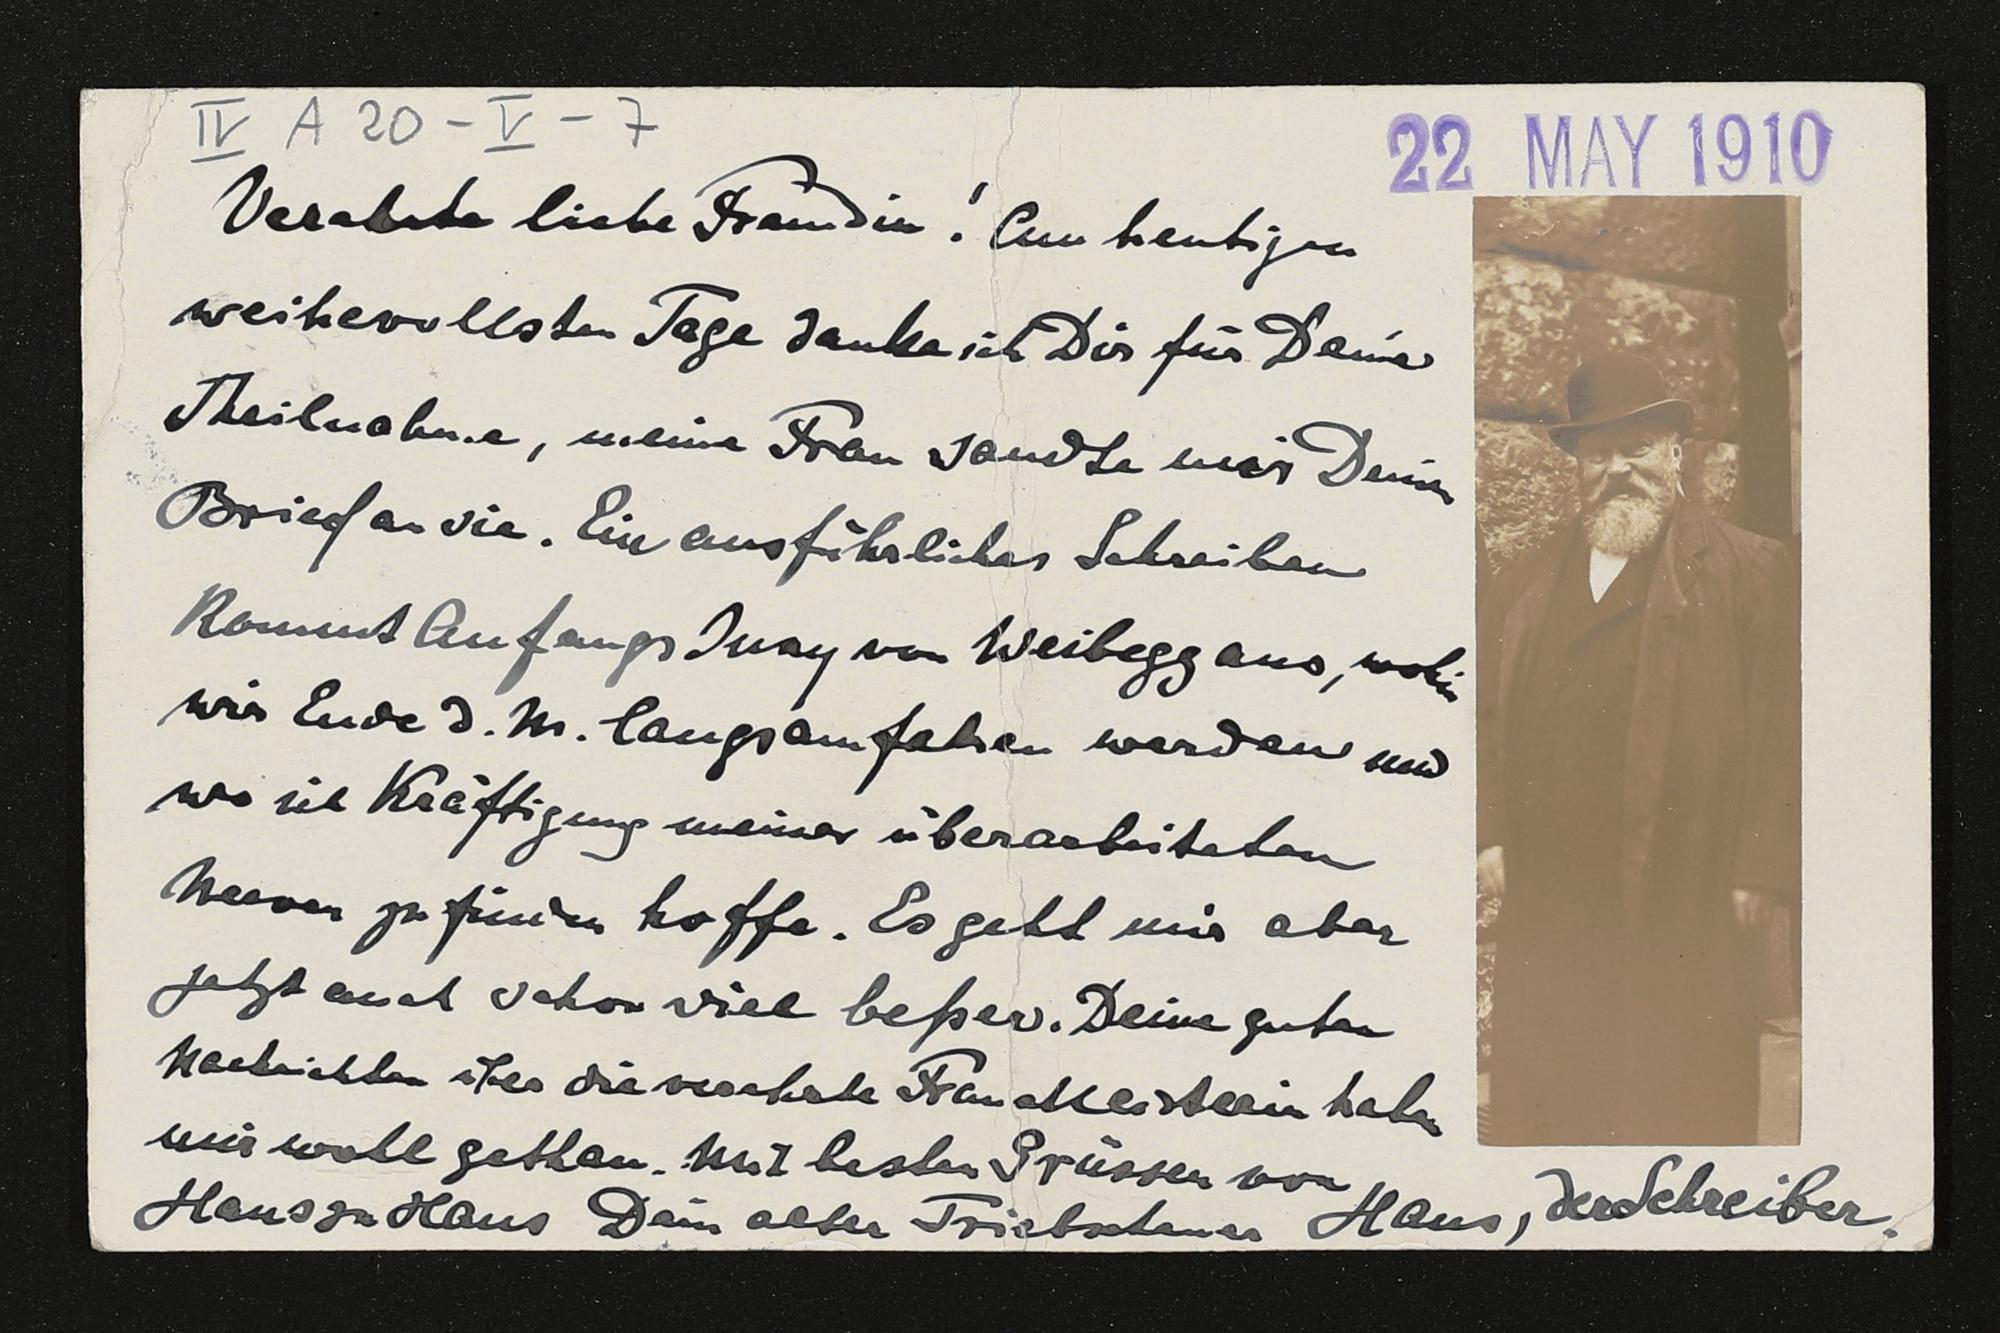 IV A 20 - V - 7
22 MAY 1910
Verehrte liebe Freundin! Am heutigen
weihevollsten Tage danke ich Dir für Deine
Theilnahme, meine Frau sandte mir Deinen
Brief an sie. Ein ausführliches Schreiben
kommt Anfangs Juny von Weibegg aus, wohin
wir Ende d. M. langsam fahren werden und
wo ich Kräftigung meiner überarbeiteten
Nerven zu finden hoffe. Es geht mir aber
jetzt auch schon viel beßer. Deine guten
Nachrichten über die verehrte Frau Meisterin haben
mir wohl gethan. Mit besten Grüssen von
Haus zu Haus Dein alter Triebschener Hans, der Schreiber.